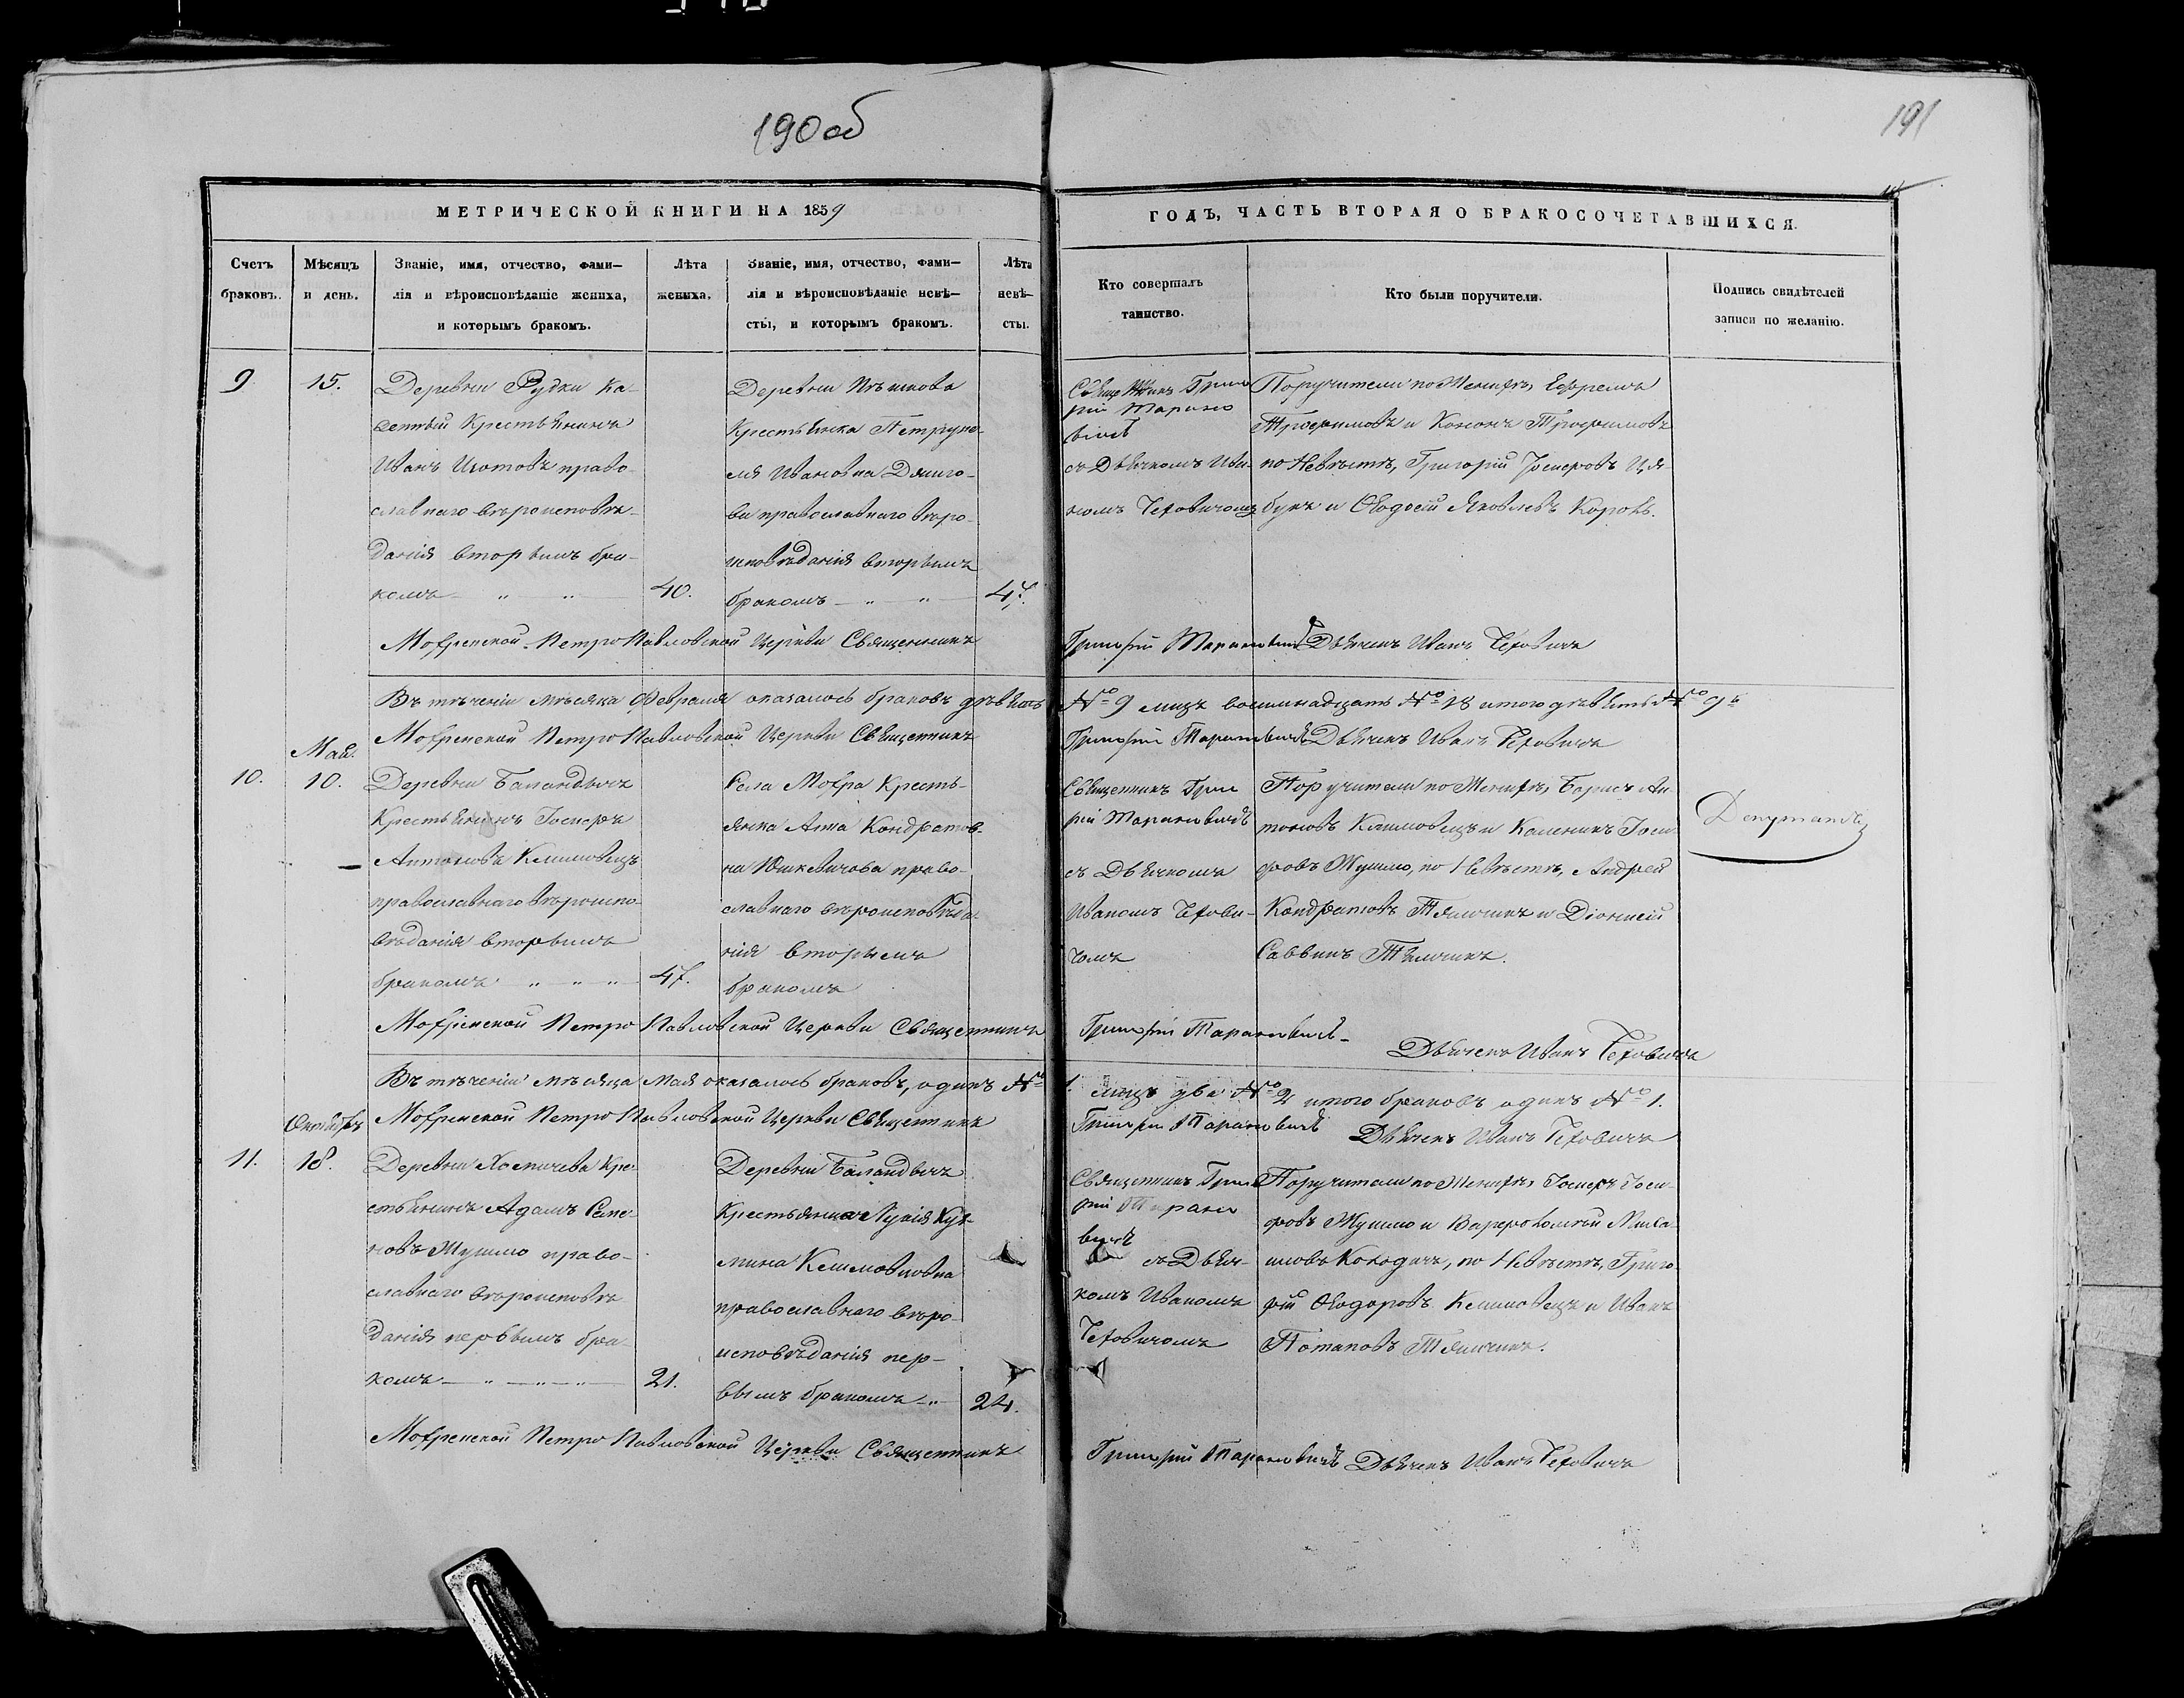 190 об
191
МЕТРИЧЕСКОЙ КНИГИ НА 1859
ГОДЪ, ЧАСТЬ ВТОРАЯ О БРАКОСОЧЕТАВШИХСЯ.
Счетъ
браковъ.
Мѣсяцъ
и день.
Званіе, имя, отчество, фами—
лія и вѣроисповѣданіе жениха,
и которымъ бракомъ.
Лѣта
жениха.
Званіе, имя, отчество, фами—
лія и вѣроисповѣданіе невѣ—
сты, и которымъ бракомъ.
Лѣта
невѣ—
сты.
Кто совершалъ
таинство.
Кто были поручители.
Подпись свидѣтелей
записи по желанію.
9
15.
Деревни Рудки Ка-
зенный Крестьянинъ
Иванъ право-
славнаго вѣроисповѣ-
данія вторымъ бра-
комъ
40.
Деревни
Крестьянка Петруне-
ля Ивановна
православнаго вѣро-
исповѣданія вторымъ
бракомъ
47.
Священникъ Григо
рій Тарано
вичъ
съ Дьячкомъ Ива-
номъ Чеховичомъ
Поручители по Женихѣ, Ефремъ
Трофимовъ и Кононъ Трофимовъ
по Невѣстѣ, Григорій Іосифовъ Ця-
букъ и Ѳеодосій Яковлевъ Король.
Мохренской Петро Павловской Церкви Священникъ
Григорій Тарановичъ Дьячекъ Иванъ Чеховичъ
Въ теченіи мѣсяца Февраля оказалось браковъ девять
№ 9 лицъ восимнадцать № 18 итого девять № 9
Мохренской Петро Павловской Церкви Священникъ
Григорій Тарановичъ Дьячекъ Иванъ Чеховичъ
10.
Мая.
10.
Деревни Баландычъ
Крестьянинъ Іосифъ
Антоновъ Климовецъ
православнаго вѣроиспо-
вѣданія вторымъ
бракомъ
47.
Села Мохра Кресть-
янка Анна Кондратов-
на Юшкевичова право-
славнаго вѣроисповѣда-
нія вторымъ
бракомъ
Священникъ Григо
рій Тарановичъ
съ Дьячкомъ
Иваномъ Чехови-
чомъ
Поручители по Женихѣ, Борисъ Ан-
тоновъ Климовецъ и Каленикъ Іоси-
фовъ Жушмо, по Невѣстѣ, Андрей
Кондратовъ и Діонисій
Саввинъ
Депутатъ
Мохренской Петро Павловской Церкви Священникъ
Григорій Тарановичъ
Дьячекъ Иванъ Чеховичъ
Въ теченіи мѣсяца Мая оказалось браковъ, одинъ №
1. лицъ два № 2 итого браковъ одинъ № 1.
Мохренской Петро Павловской Церкви Священникъ
Григорій Тарановичъ Дьячекъ Иванъ Чеховичъ
11.
Октябрь
18.
Деревни Кре-
стьянинъ Адамъ Семе-
новъ Жушмо право-
славнаго вѣроисповѣ
данія первымъ бра-
комъ
21.
Деревни Баландычъ
Крестьянка Лукія Кузь-
мина Климовцовна
православнаго вѣро-
исповѣданія пер-
вымъ бракомъ
24.
Священникъ Григо
рій Тарано
вичъ
съ Дьяч-
комъ Иваномъ
Чеховичомъ
Поручители по Женихѣ, Іосифъ Іоси-
фовъ Жушмо и Варфоломей
Колодичъ, по Невѣстѣ, Григо-
рій Ѳеодоровъ Климовецъ и Иванъ
Потаповъ
Мохренской Петро Павловской Церкви Священникъ
Григорій Тарановичъ Дьячекъ Иванъ Чеховичъ